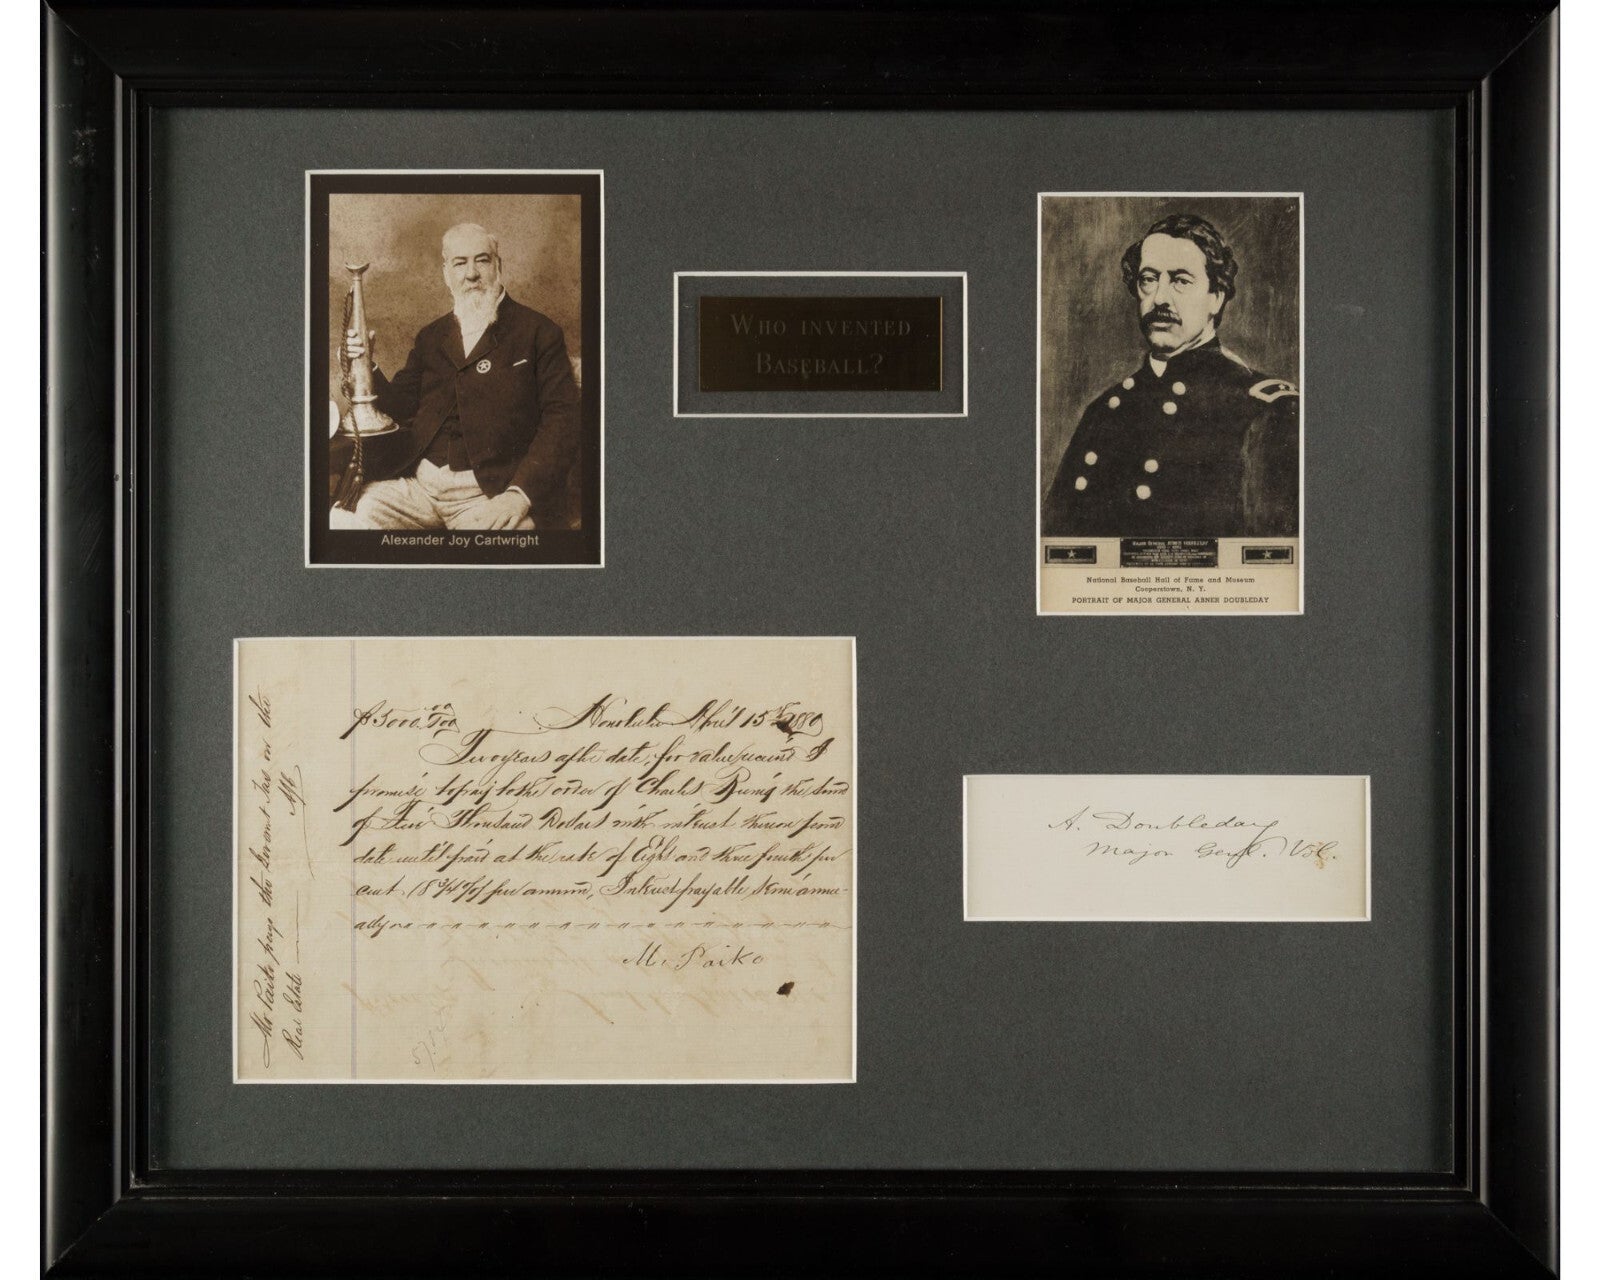 WHO INVENTED
BASEBALL?
Alexander Joy Cartwright
MAJOR GENERAL ABNER DOUBLEDAY
National Baseball Hall of Fame and Museum
Cooperstown, N. Y.
PORTRAIT OF MAJOR GENERAL ABNER DOUBLEDAY
$5000.00/100 Honolulu April 15th 1880
Two years after date, for value received I
promise to pay to the order of Charles the sum
of Five Thousand Dollars with interest thereon from
date until paid at the rate of Eight and three fourths per
cent (8 3/4 %) per annum, Interest payable semi annu-
ally
M. Paiko
Mr Paiko pays the Taxes on the
Real Estate
A. Doubleday
Major Genl. Vol.